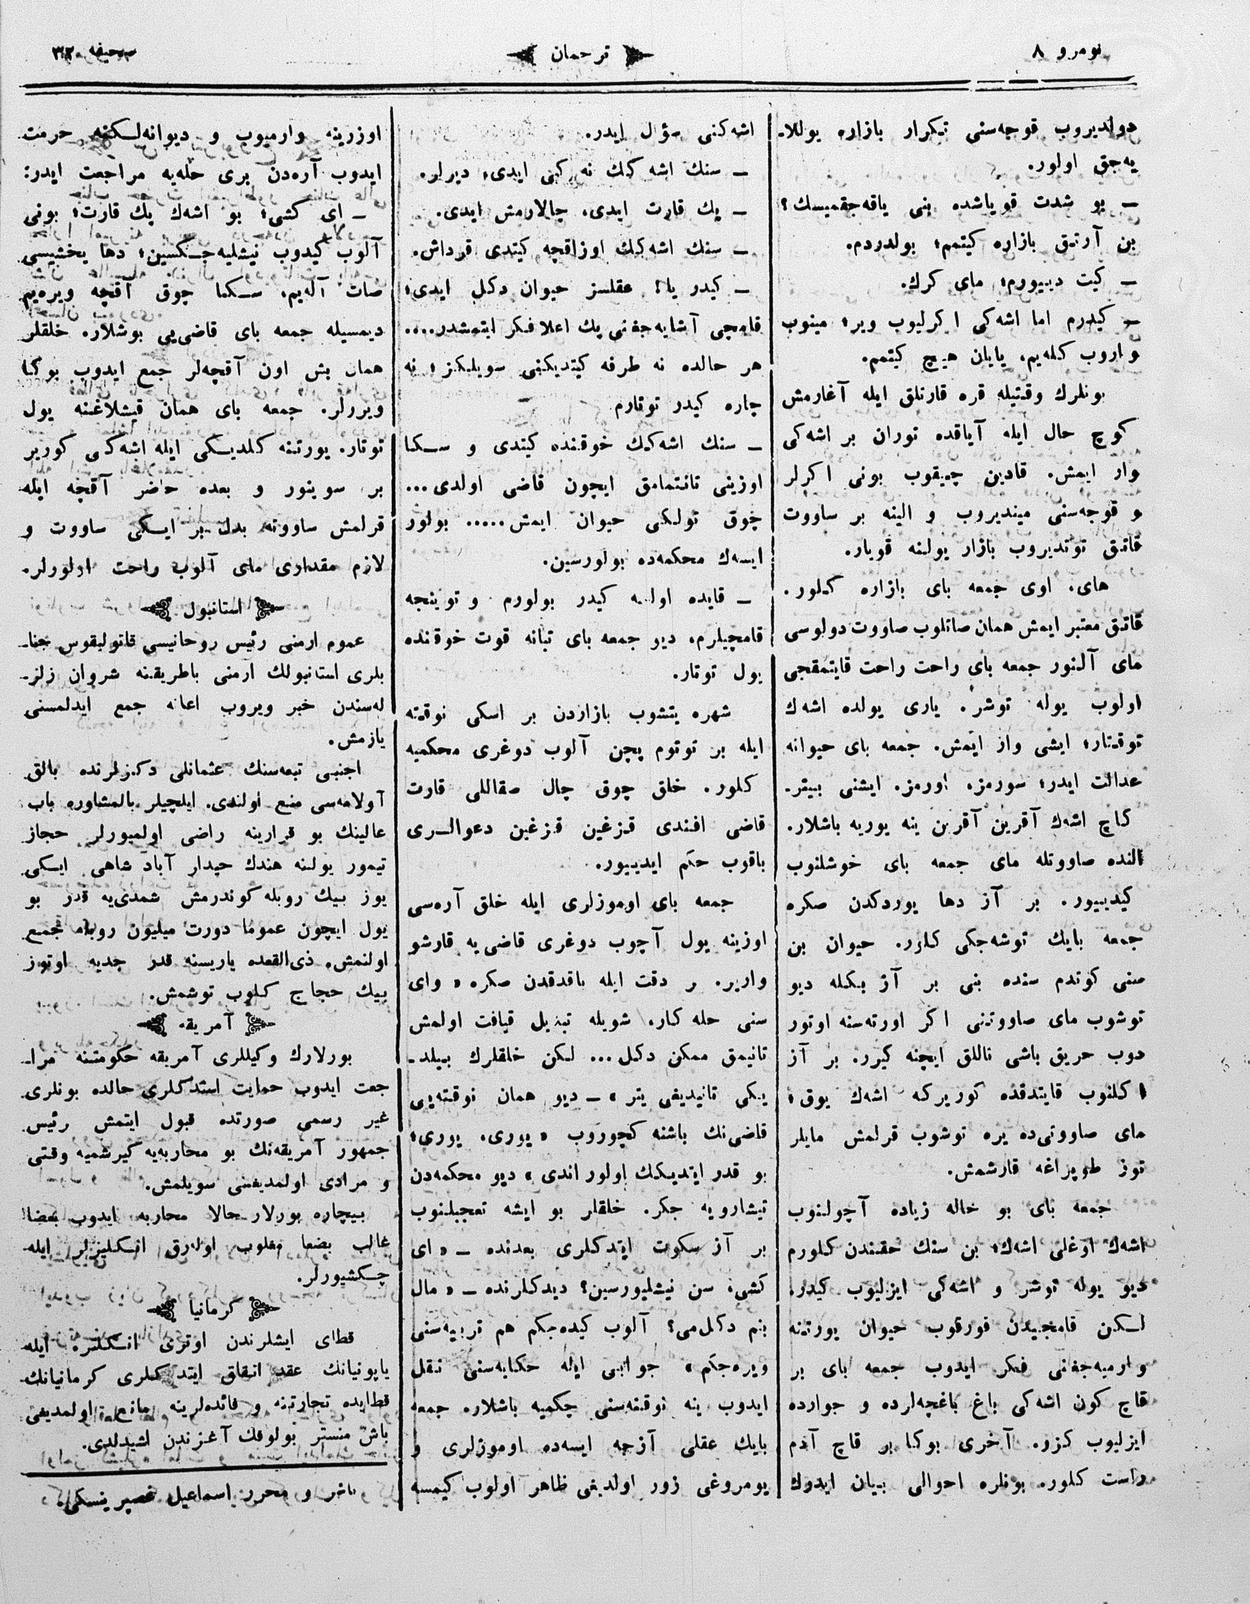 نومرو ٨
ترجمان
صحیفه ٣٢
دولدیروب قوجه‌سنی تکرار بازاره یوللا-
یه‌جق اولور.
— بو شدت قویاشده بنی یاقه‌جقمیسك؟
بن آرتق بازاره کیتمم؛ بولدردم.
— کیت دیییورم؛ مای کرك.
— کیدرم اما اشه‌کی اکرلیوب ویر؛ مینوب
واروب کله‌یم، یایان هیچ کیتمم.
بونلرك وقتیله قره قارنلق ایله آغارمش
کوچ حال ایله آیاقده توران بر اشه‌کی
وار ایمش. قادین چیقوب بونی اکرلر
و قوجه‌سنی میندیروب و الینه بر ساووت
قاتق توتدیروب بازار یولنه قویار.
های. اوی جمعه بای بازاره کلور.
قاتق معتبر ایمش همان صاتلوب صاووت دولوسی
مای آلنور جمعه بای راحت راحت قایتمقجی
اولوب یوله توشر. یاری یولده اشه‌ك
توقتار؛ ایشی وار ایمش. جمعه بای حیوانه
عدالت ایدر؛ سورمز. اورمز. ایشنی بیتر-
کاچ اشه‌ك آقرین آقرین ینه یوریه باشلار.
النده صاووتله مای جمعه بای خوشلنوب
کیدییور. بر آز دها یوردکدن صکره
جمعه بایك توشه‌جکی کلور. حیوان بن
سنی کوتدم سنده بنی بر آز بکله دیو
توشوب مای صاووتنی اکر اورته‌سنه اوتور
دوب حریق باشی ناللق ایچنه کیرر. بر آز
اکلنوب قایتدقده کوریرکه اشه‌ك یوق؛
مای صاووتی‌ده یره توشوب قرلمش مایلر
توز طوپراغه قارشمش.
جمعه بای بو حاله زیاده آچولنوب
اشه‌ك اوغلی اشه‌ك؛ بن سنك حقندن کلورم
دیو یوله توشر و اشه‌کی ایزلیوب کیدر.
لکن قامچیدن قورقوب حیوان یورتنه
وارمیه‌جغنی فکر ایدوب جمعه بای بر
قاچ کون اشه‌کی باغ باغچه‌لرده و جوارده
ایزلیوب کزر. آخری بوکا بر قاچ آدم
راست کلور. بونلره احوالی بیان ایدوك
اشه‌کنی سؤال ایدر.
— سنك اشه‌كك نه کبی ایدی؛ دیرلر.
— پك قارت ایدی، چالارمش ایدی.
— سنك اشه‌كك اوزاقچه کیتدی قرداش.
— کیدر یا! عقلسز حیوان دکل ایدی؛
قامچی آشایه‌جغنی پك اعلا فکر ایتمشدر....
هر حالده نه طرفه کیتدیکنی سویلیکز؛ نه
چاره کیدر توتارم
— سنك اشه‌كك خوقنده کیتدی و سکا
اوزینی تانتمامق ایچون قاضی اولدی...
چوق تولکی حیوان ایمش..... بولور
ایسه‌ك محکمه‌ده بولورسین.
— قایده اولسه کیدر بولورم و توینجه
قامچیلرم، دیو جمعه بای تبانه قوت خوقنده
یول توتار.
شهره یتشوب بازاردن بر اسکی نوقته
ایله بر توتوم پچن آلوب دوغری محکمیه
کلور. خلق چوق چال صقاللی قارت
قاضی افندی قزغین قزغین دعوالری
باقوب حکم ایدییور.
جمعه بای اوموزلری ایله خلق آره‌سی
اوزینه یول آچوب دوغری قاضی‌یه قارشو
واریر. و دقت ایله باقدقدن صکره « وای
سنی حله کار. شویله تبدیل قیافت اولمش
تانیمق ممکن دکل... لکن خلقلرك بیلد-
یکی تانیدیغی یتر » — دیو همان نوقته‌یی
قاضی‌نك باشنه کچوروب « یوری. یوری؛
بو قدر ایتدیكك اولور اندی » دیو محکمه‌دن
تیشارویه چکر. خلقلر بو ایشه تعجبلنوب
بر آز سکوت ایتدکلری بعدنده — « ای
کشی، سن نیشلیورسین؟ دیدکلرنده — « مال
بنم دکل‌می؟ آلوب کیده‌جکم هم تربیه‌سنی
ویره‌جکم » جوابی ایله حکایه‌سنی نقل
ایدوب ینه نوقته‌سنی چکمیه باشلار. جمعه
بایك عقلی آزجه ایسه‌ده اوموزلری و
یومروغی زور اولدیغی ظاهر اولوب کیمسه
اوزرینه وارمیوب و دیوانه‌لکنه حرمت
ایدوب آره‌دن بری حله‌یه مراجعت ایدر:
— ای کشی؛ بو اشه‌ك پك قارت؛ بونی
آلوب کیدوب نیشلیه‌جکسین؛ دها یخشیسی
صات آله‌یم. سکا چوق آقچه ویره‌یم
دیمسیله جمعه بای قاضی‌یی بوشلار. خلقلر
همان بش اون آقچه‌لر جمع ایدوب بوکا
ویررلر. جمعه بای همان قیشلاغنه یول
توتار. یورتنه کلدیکی ایله اشه‌کی کوریر
بر سوینور و بعده حاضر آقچه ایله
قرلمش ساووته بدل بر ایکی ساووت و
لازم مقداری مای آلوب راحت اولورلر.
استانبول
عموم ارمنی رئیس روحانیسی قاتولیقوس جنا-
بلری استانبولك ارمنی باطریقنه شروان زلز-
له‌سندن خبر ویروب اعانه جمع ایدلمسنی
یازمش.
اجنبی تبعه‌سنك عثمانلی دکزلرنده بالق
آولامه‌سی منع اولندی. ایلچیلر بالمشاوره باب
عالینك بو قرارینه راضی اولمیورلر. حجاز
تیمور یولنه هندك حیدر آباد شاهی ایکی
یوز بیك روبله کوندرمش شمدی‌یه قدر بو
یول ایچون عموما دورت میلیون روبله تجمع
اولنمش. ذی‌القعده یاریسنه قدر جدیه اوتوز
بیك حجاج کلوب توشمش.
آمریقه
بورلارك وکیللری آمریقه حکومتنه مرا-
جعت ایدوب حمایت استدکلری حالده بونلری
غیر رسمی صورتده قبول ایتمش رئیس
جمهور آمریقه‌نك بو محاربه‌یه کیرشمیه وقتی
و مرادی اولمدیغنی سویلمش.
بیچاره بورلار حالا محاربه ایدوب بعضا
غالب بضعا مغلوب اوله‌رق انکلیزلر ایله
چکشیورلر.
کرمانیا
قطای ایشلرندن اوتری انکلتره ایله
یاپونیانك عقد اتفاق ایتدکلری کرمانیانك
قطایده تجارتنه و فائده‌لرینه مانع اولمدیغی
باش منستر بولوفك آغزندن اشیدلدی.
ناشر و محرر اسماعیل غصپرینسکی.